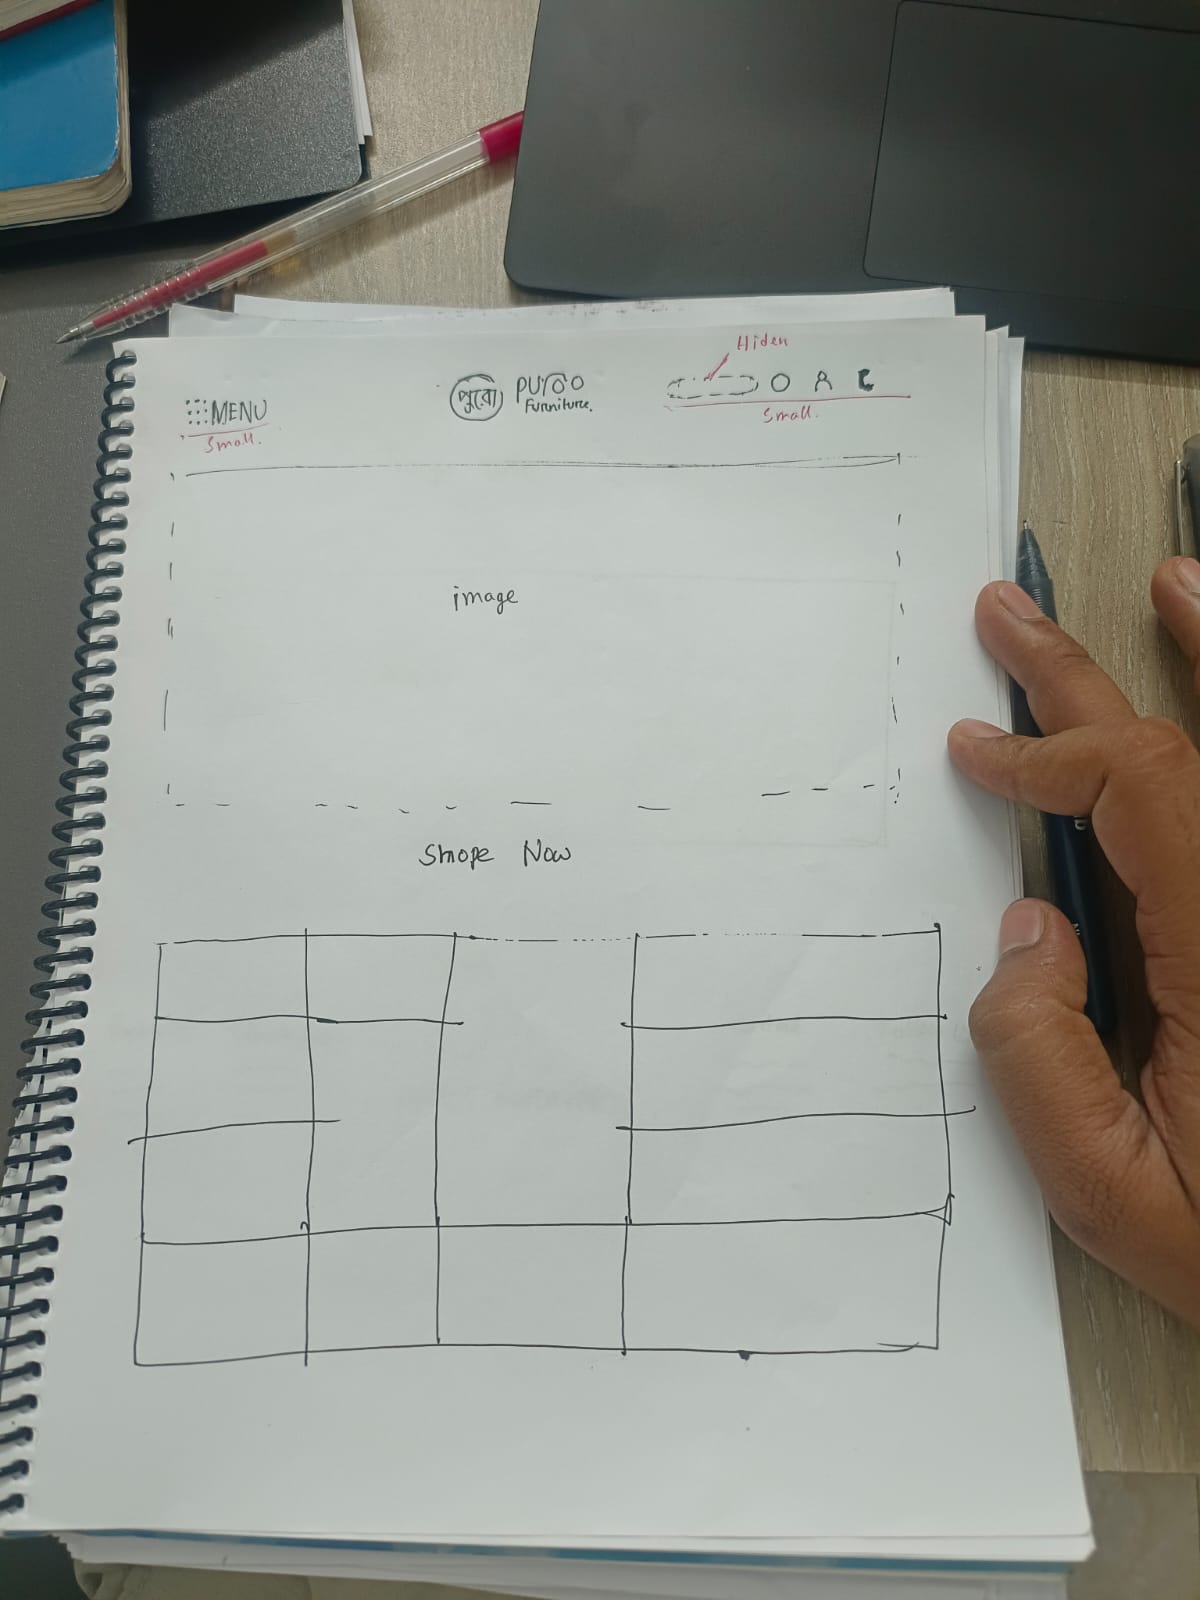 Hiden
MENU
Small.
পুরো
PUROO
Furniture.
Small.
image
Shope Now